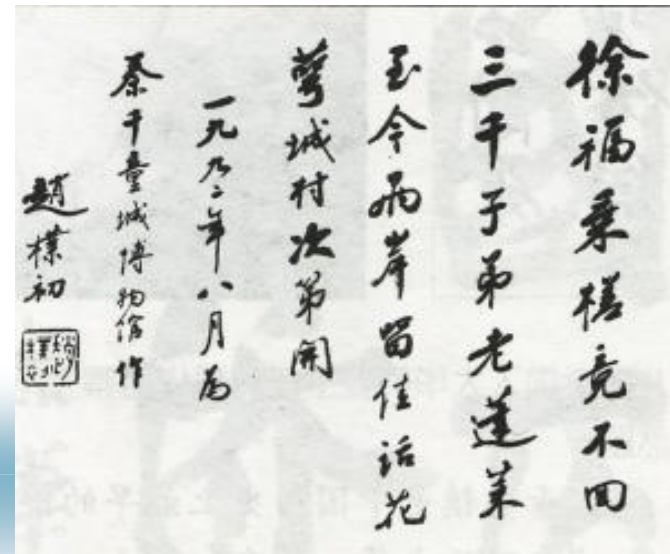 徐福乘槎竟不回
三千子弟老蓬莱
至今两岸留佳话花
萼城村次第開
一九九二年八月为
秦千童城博物馆作
趙樸初